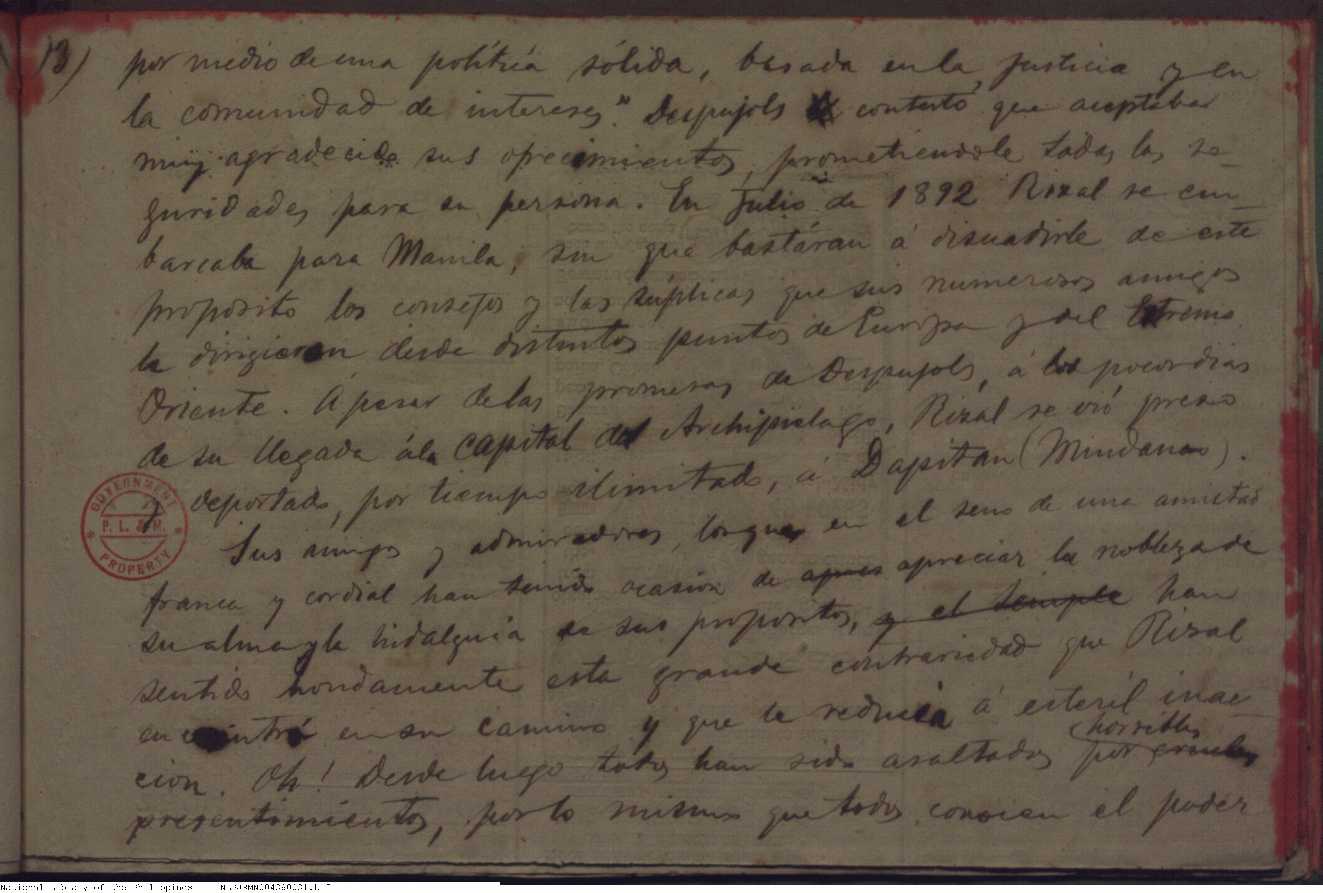 13) por medio de una política sólida, basada en la justicia y en
la comunidad de intereses". Despujols contestó que aceptaba
muy agradecido sus ofrecimientos, prometiendole todas las se-
guridades para su persona. En Julio de 1892 Rizal se em-
barcaba para Manila, sin que bastáran á disuadirle de este
proposito los consejos y las súplicas que sus numerosos amigos
le dirigieron desde distintos puntos de Europa y del Estremo
Oriente. Apesar de las promesas de Despujols, á los pocos dias
de su llegada á la capital del Archipielago, Rizal se vió preso
y deportado, por tiempo ilimitado, á Dapitan (Mindanao).
Sus amigos y admiradores, los que en el seno de una amistad
franca y cordial han tenido ocasión de apreciar la nobleza de
su alma y la hidalguia de sus propositos, y el temple han
sentido hondamente esta grande contrariedad que Rizal
encontró en su camino y que le reducia á esteril inac
cion. Oh! Desde luego todos han sido asaltados por crueles
horribles
presentimientos, por lo mismo que todos conocien el poder
GOVERNMENT
P. L. & M.
PROPERTY
National Library of the Philippines